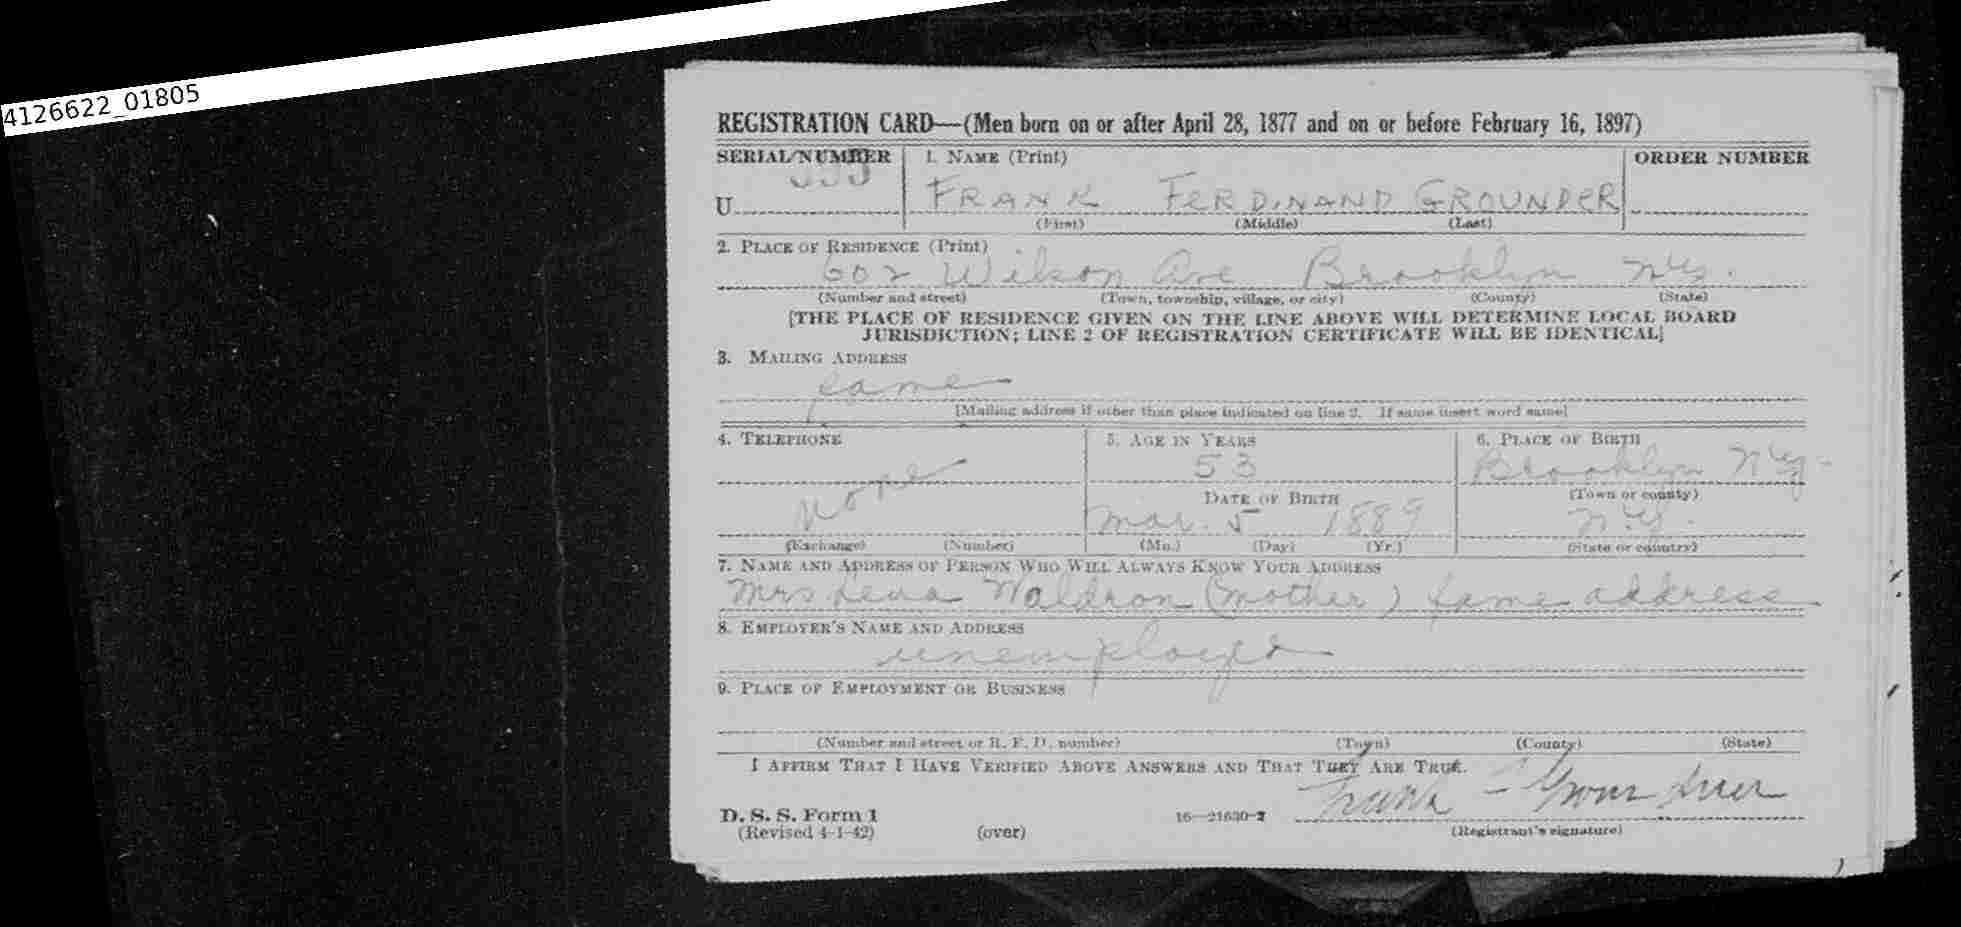 4126622_01805
REGISTRATION CARD—(Men born on or after April 28, 1877 and on or before February 16, 1897)
SERIAL NUMBER 1. NAME (Print) ORDER NUMBER
U FRANK FERDINAND GROUNDER
(First) (Middle) (Last)
2. PLACE OF RESIDENCE (Print)
602 Wilson Ave Brooklyn N.Y.
(Number and street) (Town, township, village, or city) (County) (State)
[THE PLACE OF RESIDENCE GIVEN ON THE LINE ABOVE WILL DETERMINE LOCAL BOARD
JURISDICTION; LINE 2 OF REGISTRATION CERTIFICATE WILL BE IDENTICAL]
3. MAILING ADDRESS
same
[Mailing address if other than place indicated on line 2. If same insert word same]
4. TELEPHONE 5. AGE IN YEARS 6. PLACE OF BIRTH
53 Brooklyn N.Y.
DATE OF BIRTH (Town or county)
none Mar. 5 1889 N.Y.
(Exchange) (Number) (Mo.) (Day) (Yr.) (State or country)
7. NAME AND ADDRESS OF PERSON WHO WILL ALWAYS KNOW YOUR ADDRESS
Mrs Lena Waldron (mother) same address
8. EMPLOYER'S NAME AND ADDRESS
unemployed
9. PLACE OF EMPLOYMENT OR BUSINESS
(Number and street or R. F. D. number) (Town) (County) (State)
I AFFIRM THAT I HAVE VERIFIED ABOVE ANSWERS AND THAT THEY ARE TRUE.
Frank Grounder
D. S. S. Form 1 16—21630-2
(Revised 4-1-42) (over) (Registrant's signature)